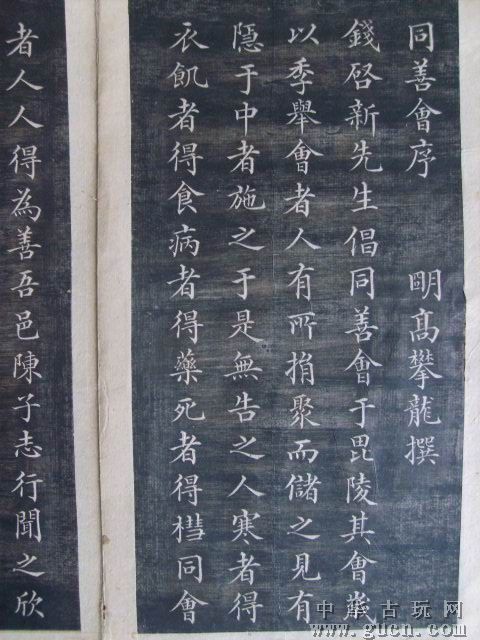 同善會序　眀髙攀龍撰
錢啓新先生倡同善會于毘陵其會歲
以季舉會者人有所捐聚而儲之見有
隱于中者施之于是無告之人寒者得
衣飢者得食病者得藥死者得槥同會
者人人得為善吾邑陳子志行聞之欣
中華古玩网
www.gucn.com